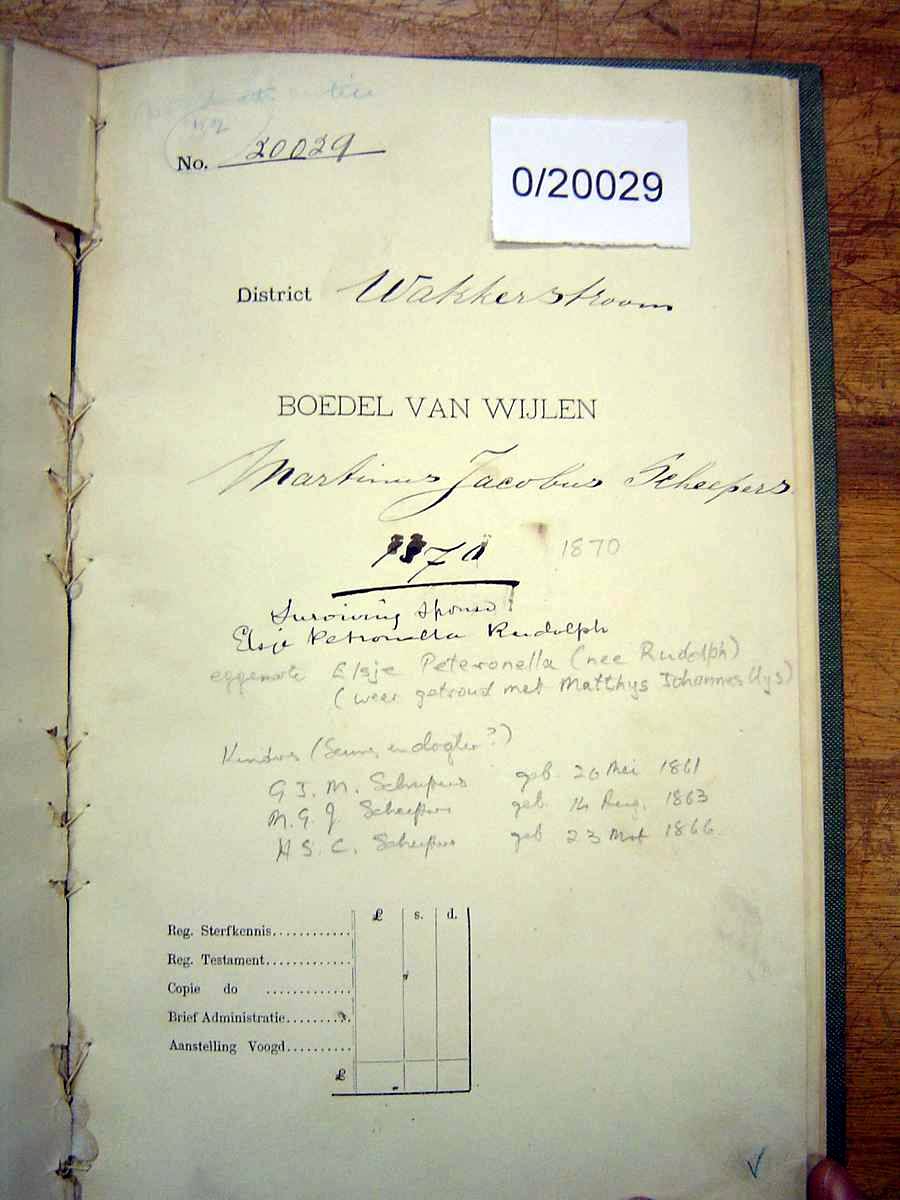 No. 20029
0/20029
District Wakkerstroom
BOEDEL VAN WIJLEN
Martinus Jacobus Scheepers
1870 1870
Surviving spouse:
Elsje Petronella Rudolph
eggenote Elsje Peteronella (nee Rudolph)
(weer getroud met Matthys Johannes Uys)
Kinders (Seuns en dogter?)
G J. M. Scheepers geb. 20 Mei 1861
M. G. J Scheepers geb. 14 Aug. 1863
H S. C. Scheepers geb 23 Mrt 1866
£ s. d.
Reg. Sterfkennis............
Reg. Testament.............
Copie do .............
Brief Administratie.........
Aanstelling Voogd..........
£